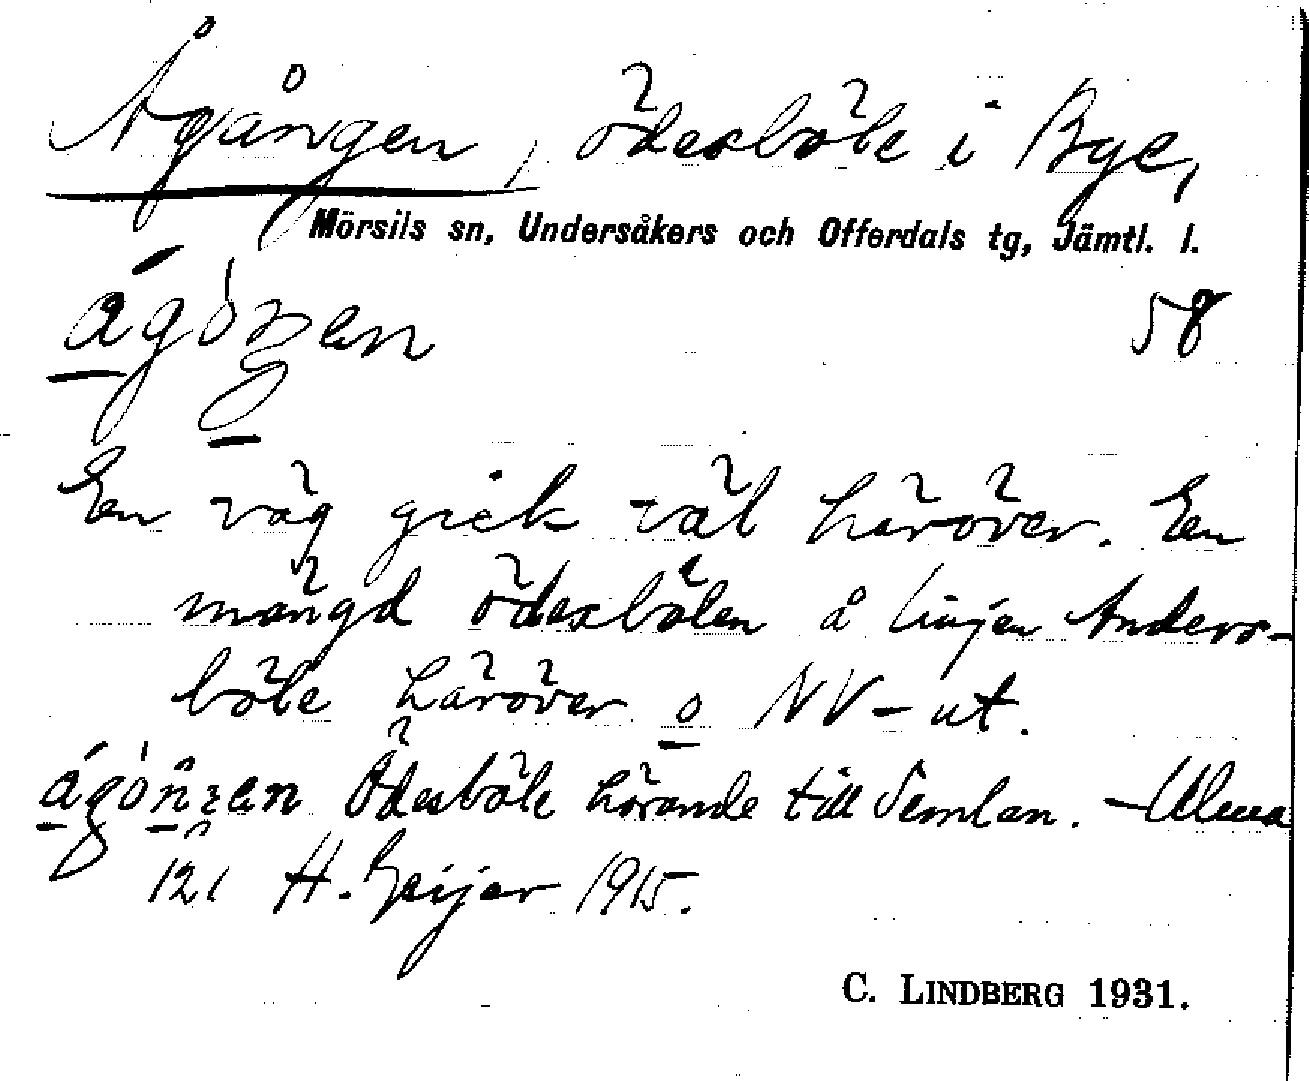 Ågången, ödesböle i Bye,
Mörsils sn, Undersåkers och Offerdals tg, Jämtl. l.
ágòŋen
58
En väg gick väl häröver. En
mängd ödesbölen å linjen Anders-
böle häröver o NV-ut.
Ödesböle hörande till Semlan. –
121 H. Geijer 1915.
C. LINDBERG 1931.